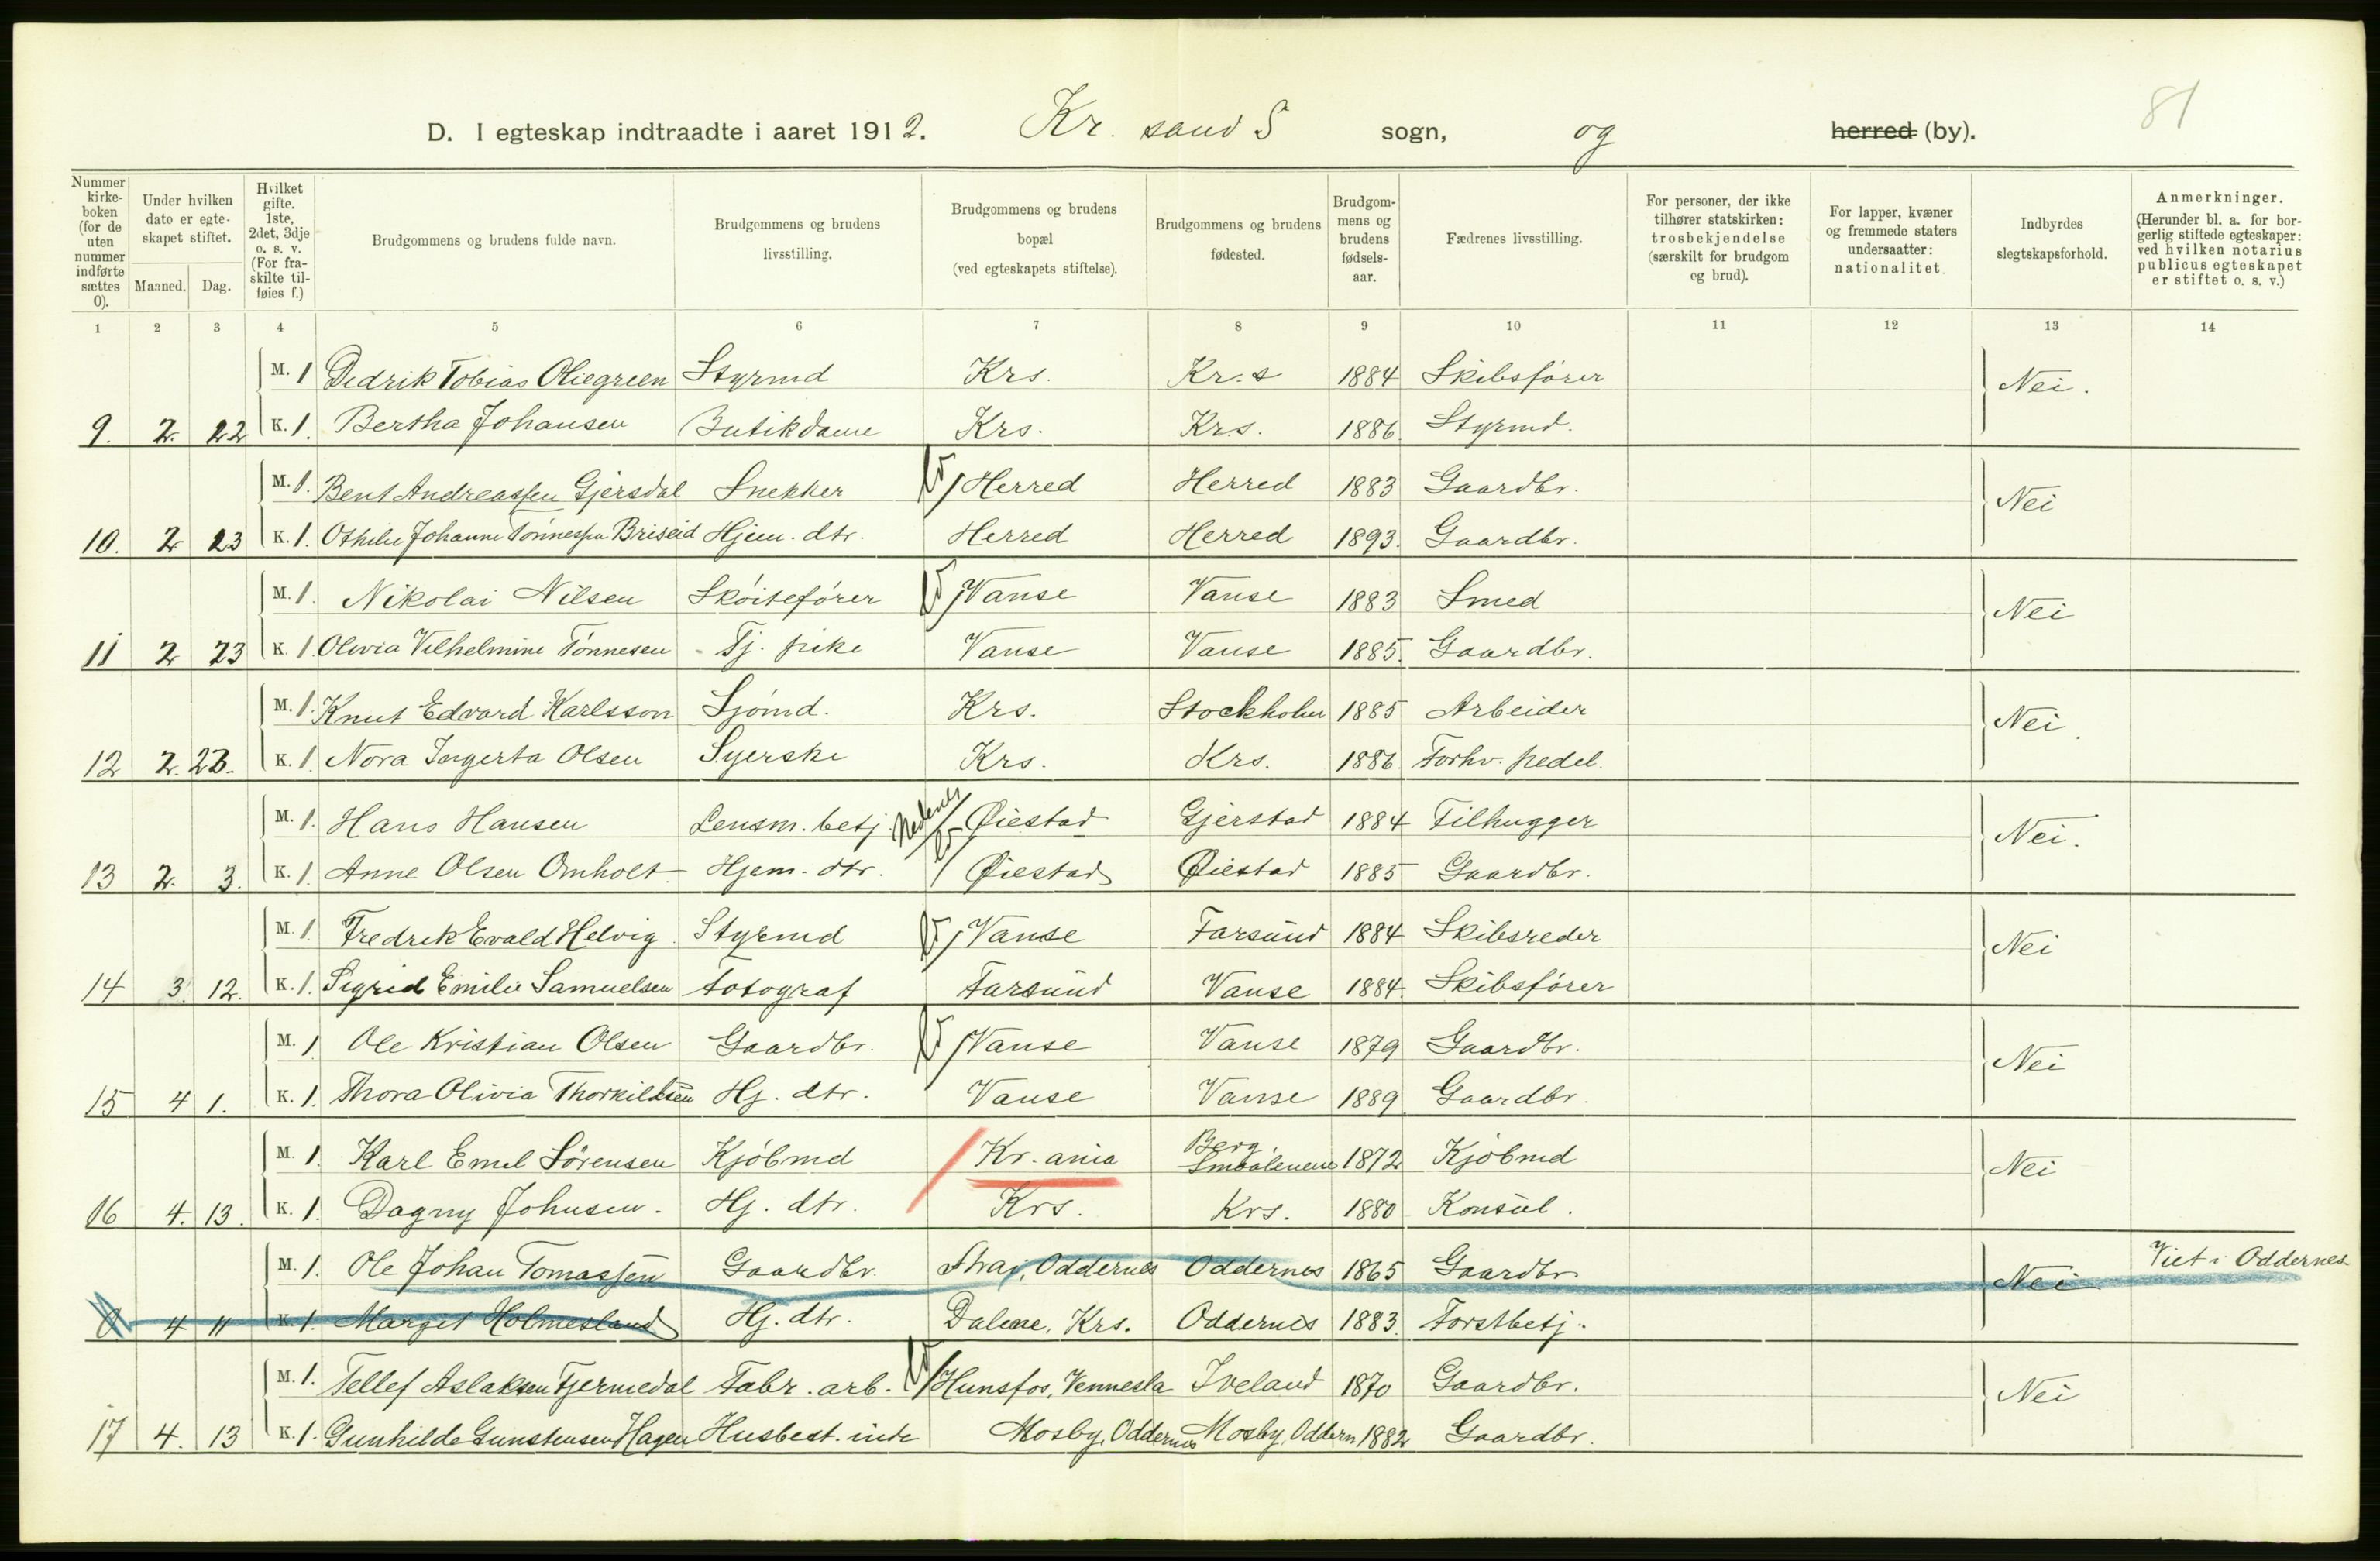 81
D. I egteskap indtraadte i aaret 1912. Kr. sand S sogn, og herred (by).
Nummer kirkeboken (for de uten nummer indførte sættes 0).
Under hvilken dato er egteskapet stiftet.
Maaned. Dag.
Hvilket gifte. 1ste, 2det, 3dje o. s. v. (For fraskilte tilføies f.)
Brudgommens og brudens fulde navn.
Brudgommens og brudens livsstilling.
Brudgommens og brudens bopæl (ved egteskapets stiftelse).
Brudgommens og brudens fødested.
Brudgommens og brudens fødselsaar.
Fædrenes livsstilling.
For personer, der ikke tilhører statskirken: trosbekjendelse (særskilt for brudgom og brud).
For lapper, kvæner og fremmede staters undersaatter: nationalitet.
Indbyrdes slegtskapsforhold.
Anmerkninger. (Herunder bl. a. for borgerlig stiftede egteskaper: ved hvilken notarius publicus egteskapet er stiftet o. s. v.)
1 2 3 4 5 6 7 8 9 10 11 12 13 14
M. 1 Dedrik Tobias Oliegreen Styrmd Krs. Kr.s 1884 Skibsfører Nei.
9. 2. 22 K. 1. Bertha Johansen Butikdame Krs. Krs. 1886. Styrmd.
M. 1. Bent Andreassen Gjersdal Snekker Herred Herred 1883 Gaardbr. Nei
10. 2 23 K. 1. Othilie Johanne Tønnessen Briseid Hjem. dtr. Herred Herred 1893. Gaardbr.
M. 1. Nikolai Nilsen Skøitefører Vanse Vanse 1883 Smed Nei
11 2 23 K. 1. Olivia Vilhelmine Tønnesen Tj. pike Vanse Vanse 1885. Gaardbr.
M. 1. Knut Edvard Karlsson Sjømd. Krs. Stockholm 1885 Arbeider Nei.
12 2. 23. K. 1. Nora Ingerta Olsen Syerske Krs. Krs. 1886. Forhv. pedel.
M. 1. Hans Hansen Lensm. betj. Nedenes Øiestad Gjerstad 1884 Tilhugger Nei.
13 2. 3. K. 1. Anne Olsen Omholt Hjem. dtr. Øiestad Øiestad 1885 Gaardbr.
M. 1. Fredrik Evald Helvig Styrmd Vanse Farsund 1884 Skibsreder Nei
14 3 12. K. 1. Sigrid Emilie Samuelsen Fotograf Farsund Vanse 1884. Skibsfører
M. 1 Ole Kristian Olsen Gaardbr. Vanse Vanse 1879 Gaardbr. Nei
15 4 1. K. 1. Thora Olivia Thorkildsen Hj. dtr. Vanse Vanse 1889 Gaardbr.
M. 1. Karl Emil Sørensen Kjøbmd Kr.ania Berg. Smaalenene 1872 Kjøbmd Nei
16 4. 13. K. 1. Dagny Johnsen. Hj. dtr. Krs. Krs. 1880 Konsul.
M. 1. Ole Johan Tomassen Gaardbr. Strai, Oddernes Oddernes 1865 Gaardbr Nei Viet i Oddernes
0 4 11 K. 1. Margit Holmesland Hj. dtr. Dalene, Krs. Oddernes 1883. Forstbetj.
M. 1. Tellef Aslaksen Tjermedal Fabr. arb. Hunsfos, Vennesla Iveland 1870 Gaardbr. Nei
17 4. 13 K. 1. Gunhilde Gunstensen Hagen Husbest.inde Mosby, Oddernes Mosby, Oddern 1882 Gaardbr.